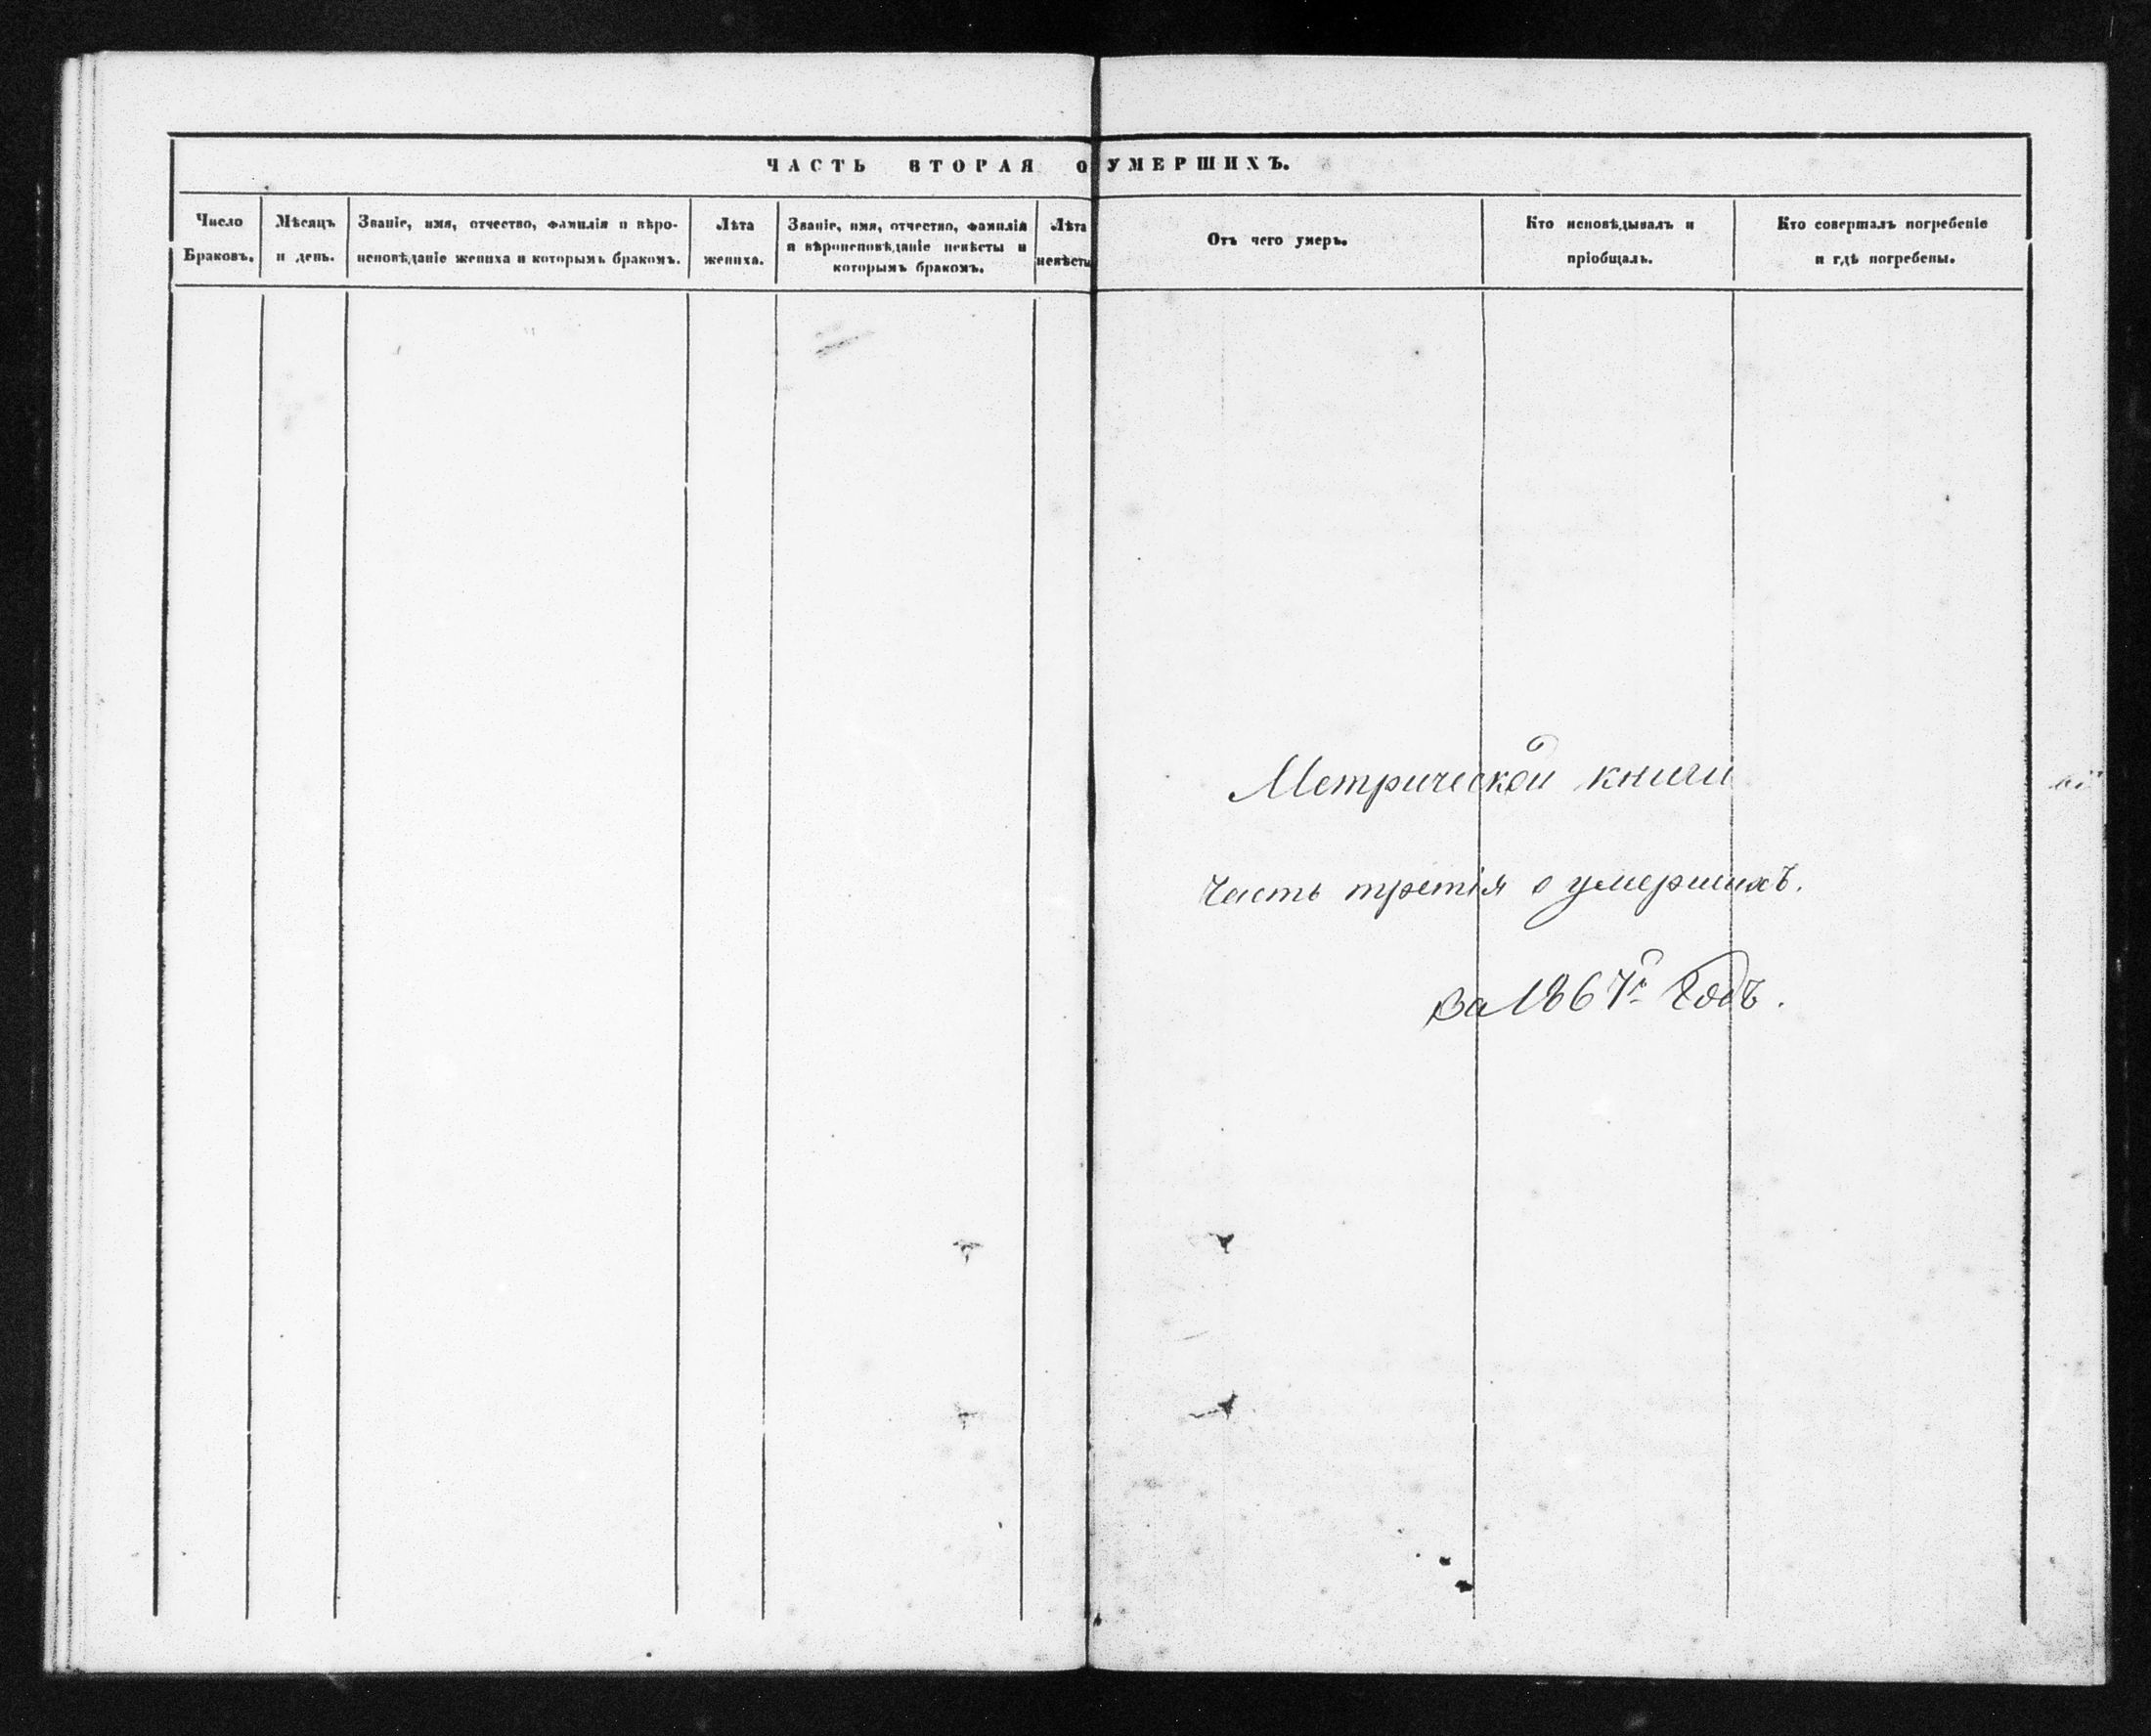 ЧАСТЬ ВТОРАЯ О УМЕРШИХЪ.
Число
Браковъ.
Мѣсяцъ
и день.
Званіе, имя, отчество, фамилія и вѣро-
исповѣданіе жениха и которымъ бракомъ.
Лѣта
жениха.
Званіе, имя, отчество, фамилія
и вѣроисповѣданіе невѣсты и
которымъ бракомъ.
Лѣта
невѣсты
Отъ чего умеръ.
Кто исповѣдывалъ и
пріобщалъ.
Кто совершалъ погребеніе
и гдѣ погребены.
Метрической книги
Часть третія о умершихъ.
За 1867й Годъ.